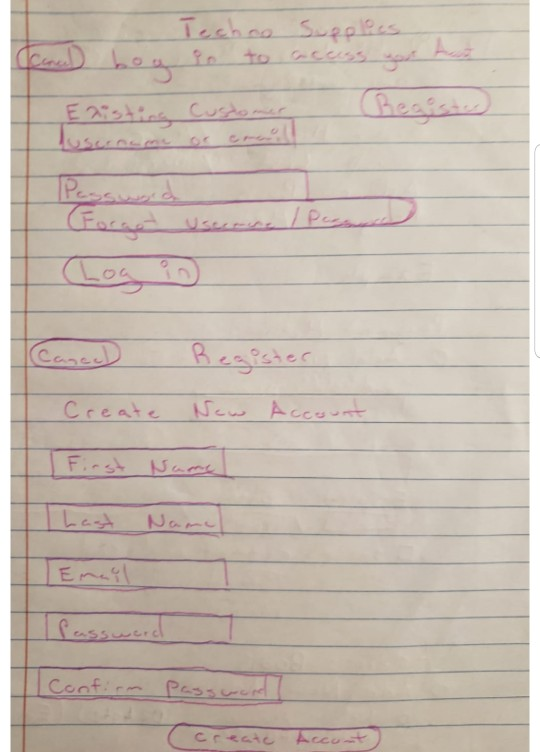 Techno Supplies
Cancel Log in to access your Acct
Existing Customer Register
username or email
Password
Forgot username / Password
Log in
Cancel Register
Create New Account
First Name
Last Name
Email
Password
Confirm Password
Create Account